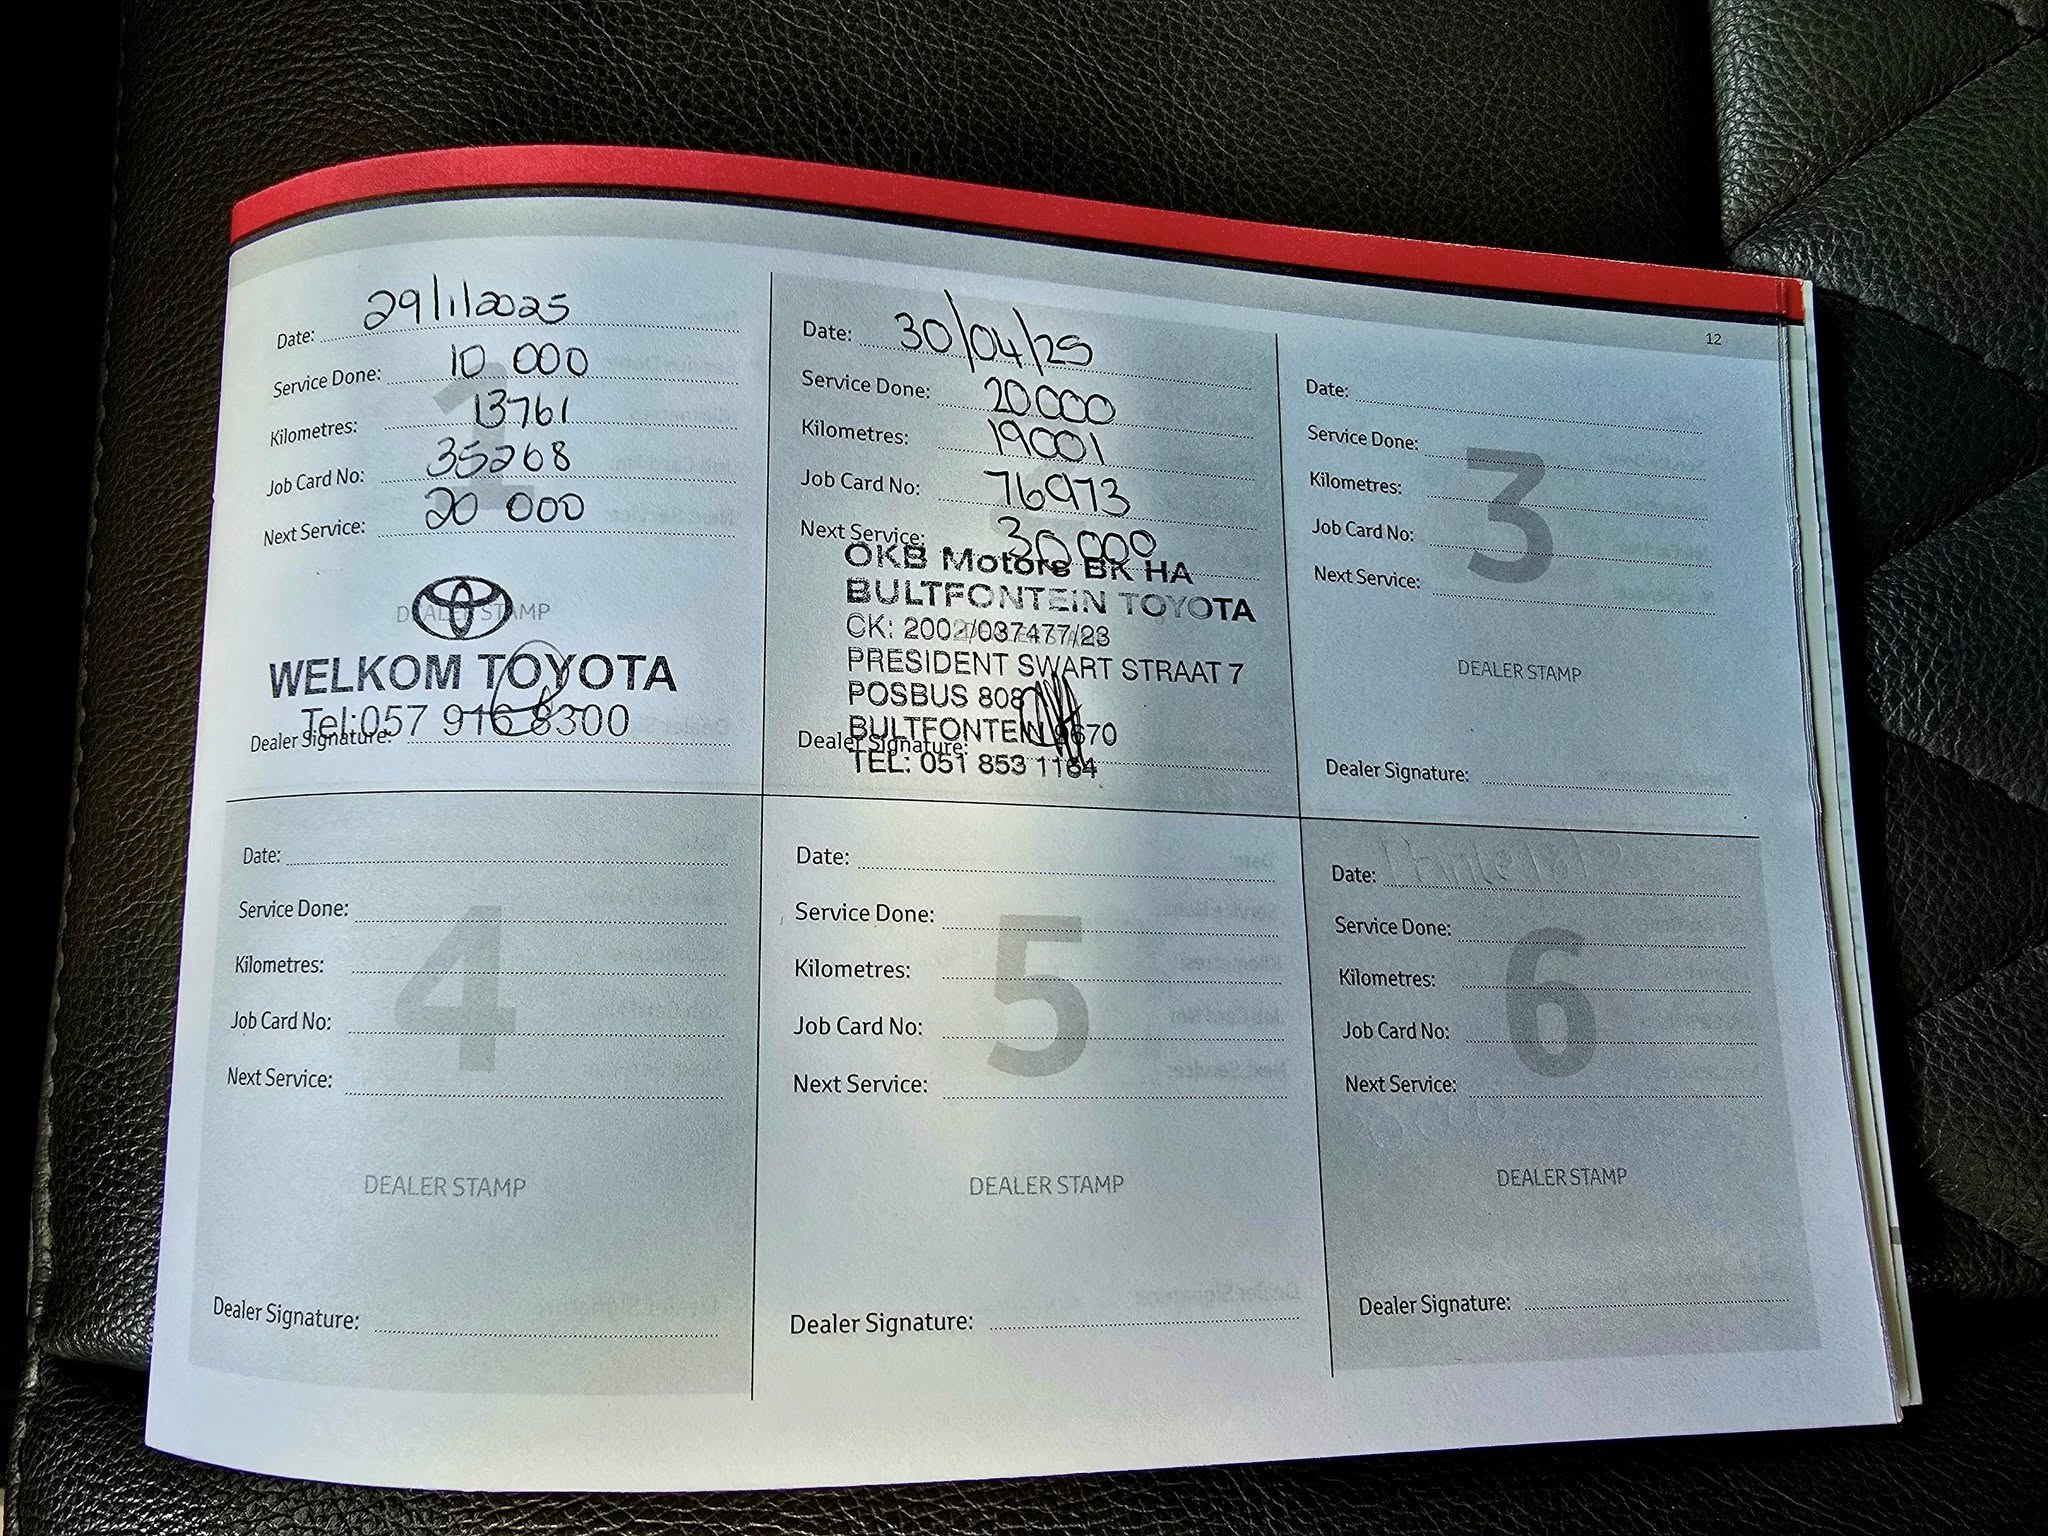 12
Date: 29/1/2025
Service Done: 10 000
Kilometres: 13761
Job Card No: 35268
Next Service: 20 000
1
DEALER STAMP
WELKOM TOYOTA
Tel:057 916 8300
Dealer Signature:
Date: 30/04/25
Service Done: 20000
Kilometres: 19001
Job Card No: 76973
Next Service: 30000
OKB Motors BK HA
BULTFONTEIN TOYOTA
CK: 2002/037477/23
PRESIDENT SWART STRAAT 7
POSBUS 808
BULTFONTEIN 9670
Dealer Signature:
TEL: 051 853 1164
Date:
Service Done:
Kilometres:
Job Card No:
Next Service:
3
DEALER STAMP
Dealer Signature:
Date:
Service Done:
Kilometres:
Job Card No:
Next Service:
4
DEALER STAMP
Dealer Signature:
Date:
Service Done:
Kilometres:
Job Card No:
Next Service:
5
DEALER STAMP
Dealer Signature:
Date:
Service Done:
Kilometres:
Job Card No:
Next Service:
6
DEALER STAMP
Dealer Signature: